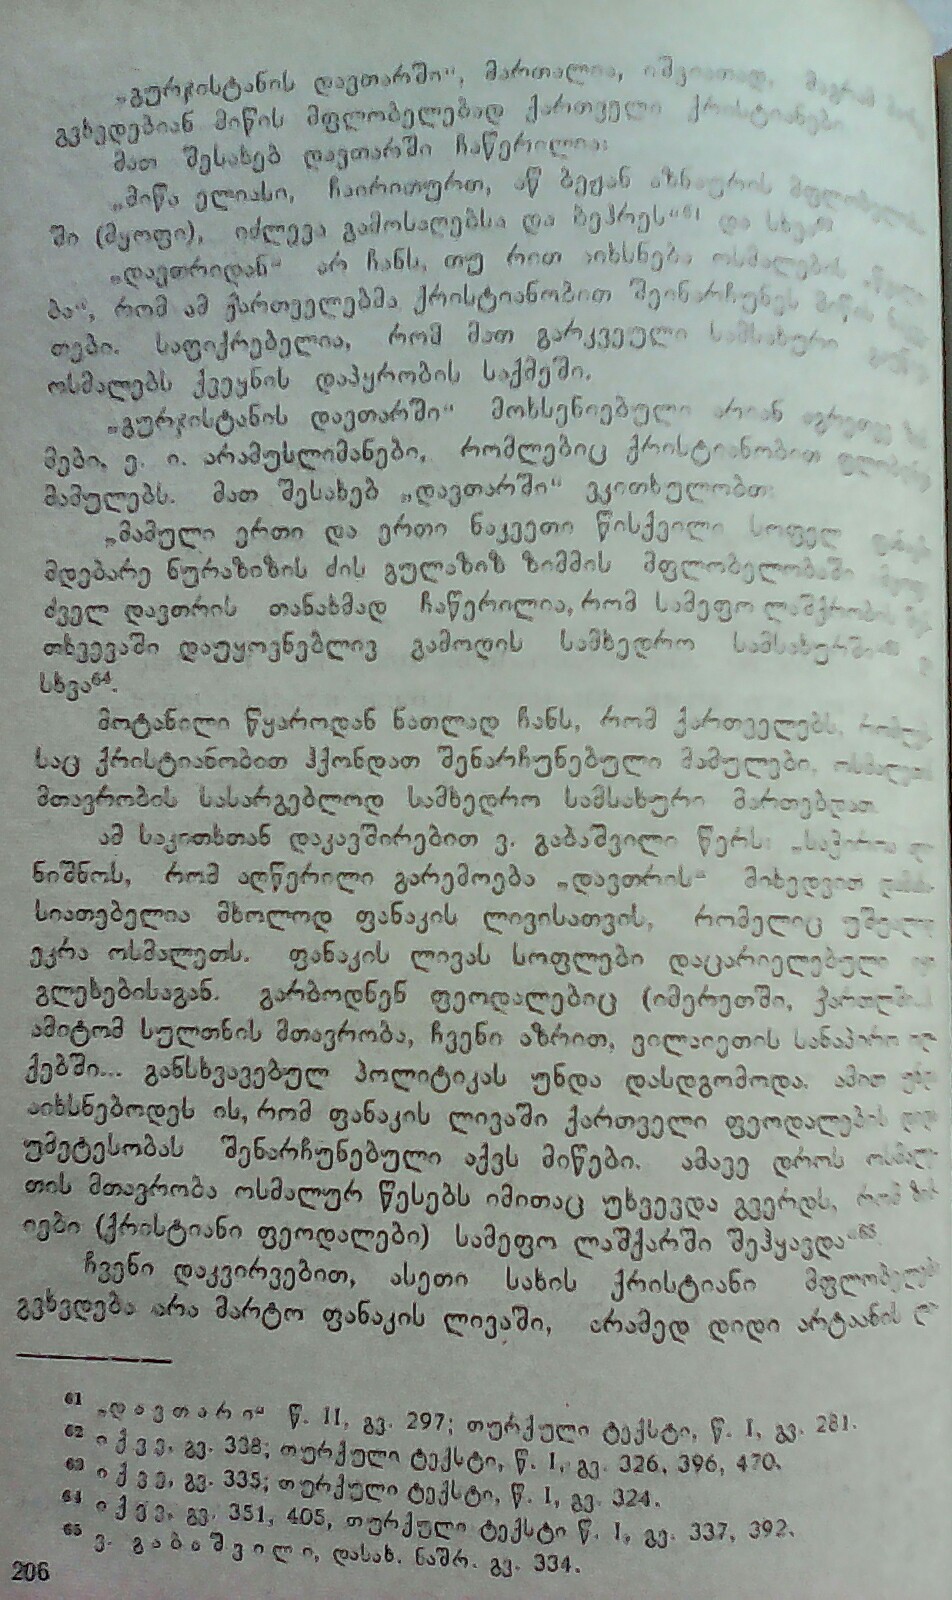 „გურჯისტანის დავთარში“, მართალია, იშვიათად, მაგრამ
გვხვდებიან მიწის მფლობელებად ქართველი ქრისტიანები
მათ შესახებ დავთარში ჩაწერილია:
„მიწა ელიასი, ჩაირითურთ, აწ ბეჟან აზნაურის მფლობელობა-
ში (მყოფი), იძლევა გამოსაღებსა და ბეჰრეს“61 და სხვ.
„დავთრიდან“ არ ჩანს, თუ რით აიხსნება ოსმალების
ბა“, რომ ამ ქართველებმა ქრისტიანობით შეინარჩუნეს მიწის
თები. საფიქრებელია, რომ მათ გარკვეული სამსახური
ოსმალებს ქვეყნის დაპყრობის საქმეში.
„გურჯისტანის დავთარში“ მოხსენიებული არიან აგრეთვე ზიმ-
მები, ე. ი. არამუსლიმანები, რომლებიც ქრისტიანობით ფლობდნენ
მამულებს. მათ შესახებ „დავთარში“ ვკითხულობთ:
„მამული ერთი და ერთი ნაკვეთი წისქვილი სოფელ
მდებარე ნურაზიზის ძის გულაზიზ ზიმმის მფლობელობაში
ძველ დავთრის თანახმად ჩაწერილია, რომ სამეფო ლაშქრობის შემ-
თხვევაში დაუყოვნებლივ გამოდის სამხედრო სამსახურში“
სხვა64.
მოტანილი წყაროდან ნათლად ჩანს, რომ ქართველებს, რომელ-
საც ქრისტიანობით ჰქონდათ შენარჩუნებული მამულები, ოსმალეთის
მთავრობის სასარგებლოდ სამხედრო სამსახური მართებდათ.
ამ საკითხთან დაკავშირებით ვ. გაბაშვილი წერს: „საჭიროა აღ-
ნიშნოს, რომ აღწერილი გარემოება „დავთრის“ მიხედვით დამახა-
სიათებელია მხოლოდ ფანაკის ლივისათვის, რომელიც უშუალოდ
ეკრა ოსმალეთს. ფანაკის ლივას სოფლები დაცარიელებული იყო
გლეხებისაგან. გარბოდნენ ფეოდალებიც (იმერეთში, ქართლში...
ამიტომ სულთნის მთავრობა, ჩვენი აზრით, ვილაიეთის სანაპირო
ქებში... განსხვავებულ პოლიტიკას უნდა დასდგომოდა. ამით უნდა
აიხსნებოდეს ის, რომ ფანაკის ლივაში ქართველი ფეოდალების დიდ
უმეტესობას შენარჩუნებული აქვს მიწები. ამავე დროს ოსმალე-
თის მთავრობა ოსმალურ წესებს იმითაც უხვევდა გვერდს, რომ ზიმ-
იები (ქრისტიანი ფეოდალები) სამეფო ლაშქარში შეჰყავდა“65
ჩვენი დაკვირვებით, ასეთი სახის ქრისტიანი მფლობელები
გვხვდება არა მარტო ფანაკის ლივაში, არამედ დიდი არტაანის ლ
61 „დავთარი“ წ. II, გვ. 297; თურქული ტექსტი, წ. I, გვ. 281.
62 იქვე, გვ. 338; თურქული ტექსტი, წ. I, გვ. 326, 396, 470.
63 იქვე, გვ. 335; თურქული ტექსტი, წ. I, გვ. 324.
64 იქვე, გვ. 351, 405, თურქული ტექსტი წ. I, გვ. 337, 392.
65 ვ. გაბაშვილი, დასახ. ნაშრ. გვ. 334.
206